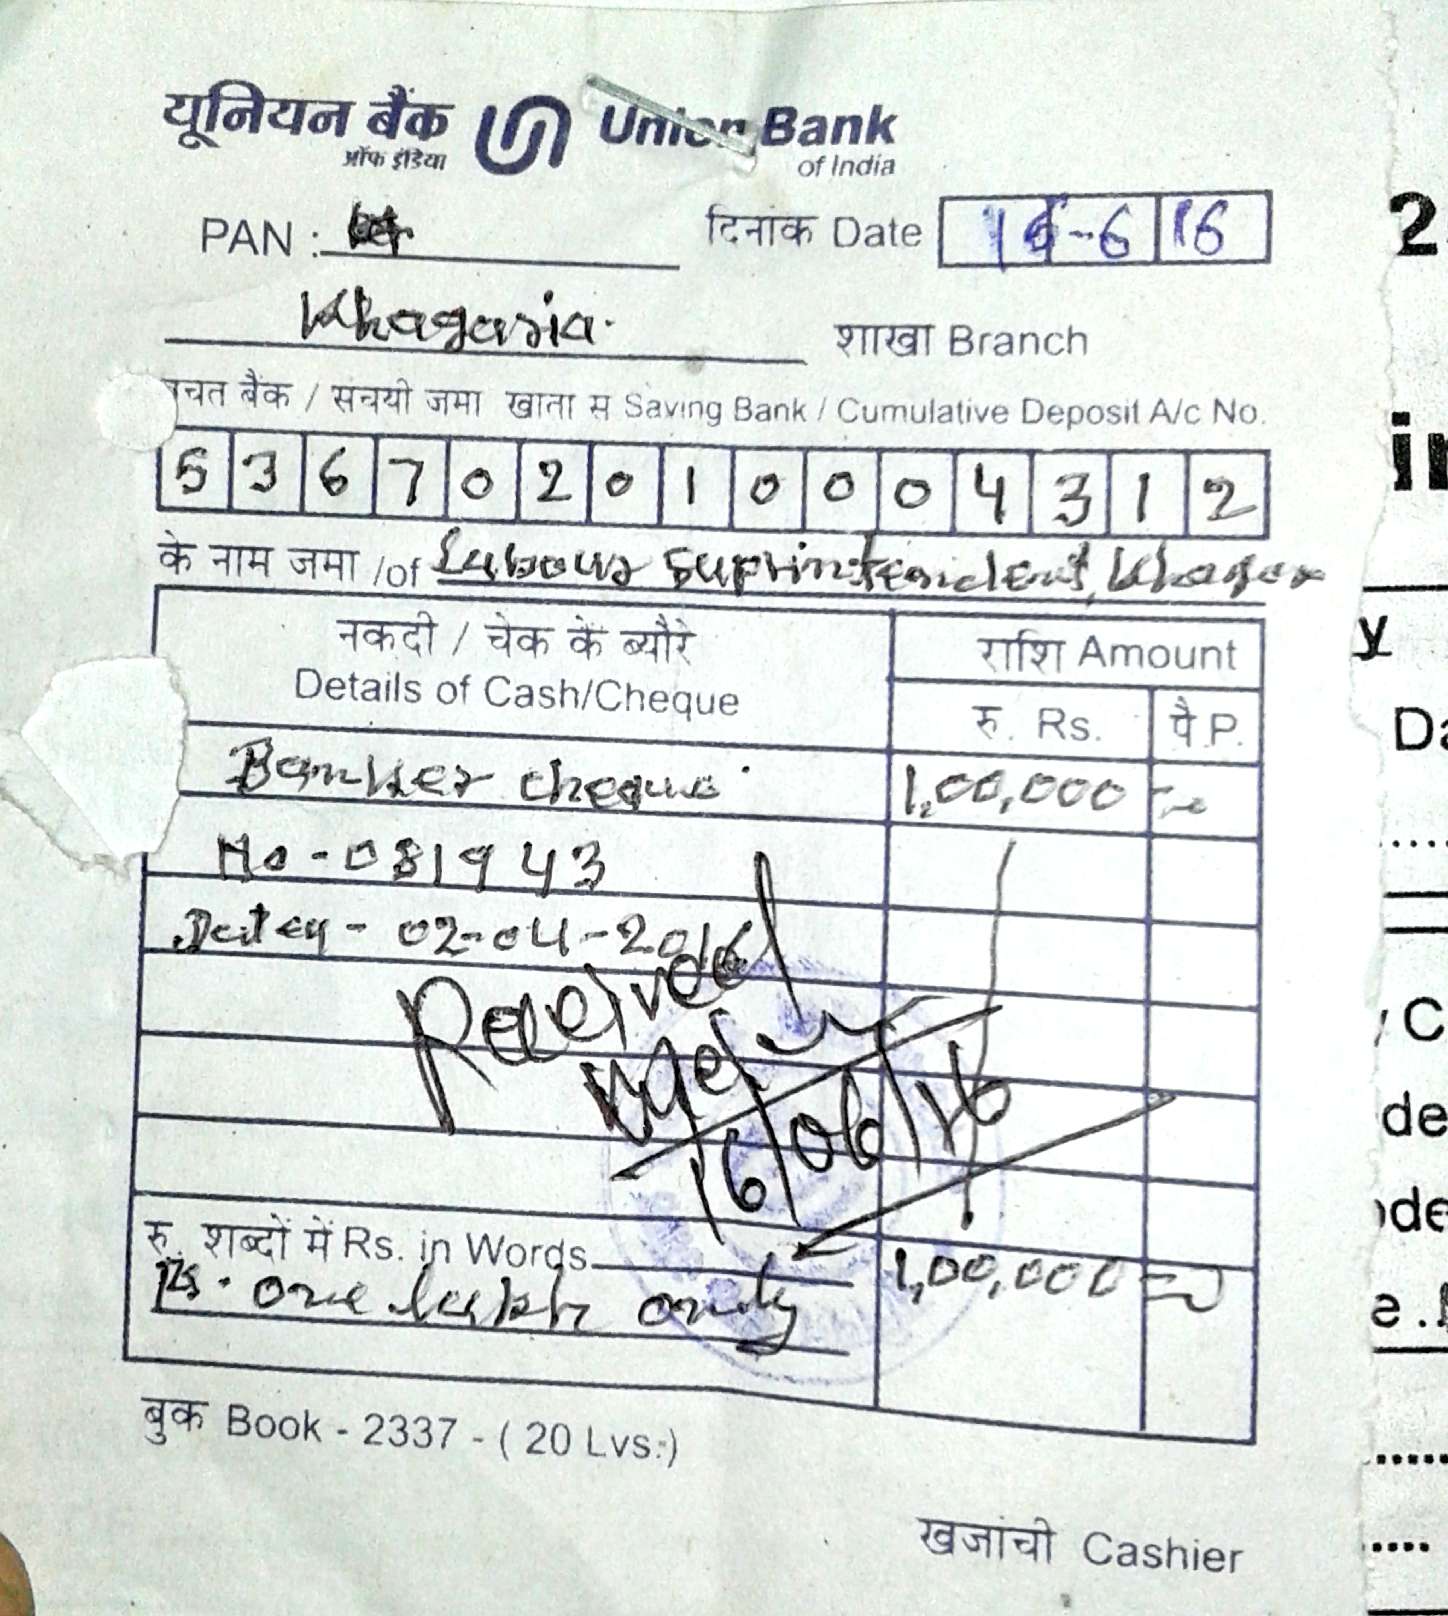 यूनियन बैंक Union Bank
ऑफ इंडिया of India
PAN : दिनांक Date 16-6 16
Khagaria. शाखा Branch
बचत बैंक / संचयी जमा खाता स Saving Bank / Cumulative Deposit A/c No.
5 3 6 7 0 2 0 1 0 0 0 4 3 1 2
के नाम जमा /of Labour Suprintendent, Khagar
नकदी / चेक के ब्यौरे राशि Amount
Details of Cash/Cheque
रु. Rs. पै P.
Banker cheque 1,00,000 =
No - 081943
Dated - 02-04-2016
Received
16/06/16
रु. शब्दों में Rs. in Words
Rs. one lakh only 1,00,000 =
बुक Book - 2337 - ( 20 Lvs.)
खजांची Cashier
2
in
y
Da
C
de
ode
e .